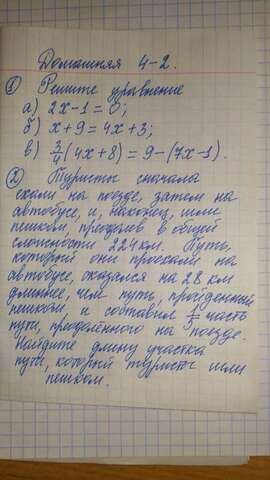 Домашняя 4-2.
① Решите уравнение
а) 2x-1=0;
б) x+9=4x+3;
в) 3/4(4x+8)=9-(7x-1).
② Туристы сначала
ехали на поезде, затем на
автобусе, и, наконец, шли
пешком, преодолев в общей
сложности 224км. Путь,
который они проехали на
автобусе, оказался на 28 км
длиннее, чем путь, пройденный
пешком, и составил 1/5 часть
пути, преодолённого на поезде.
Найдите длину участка
пути, который туристы шли
пешком.